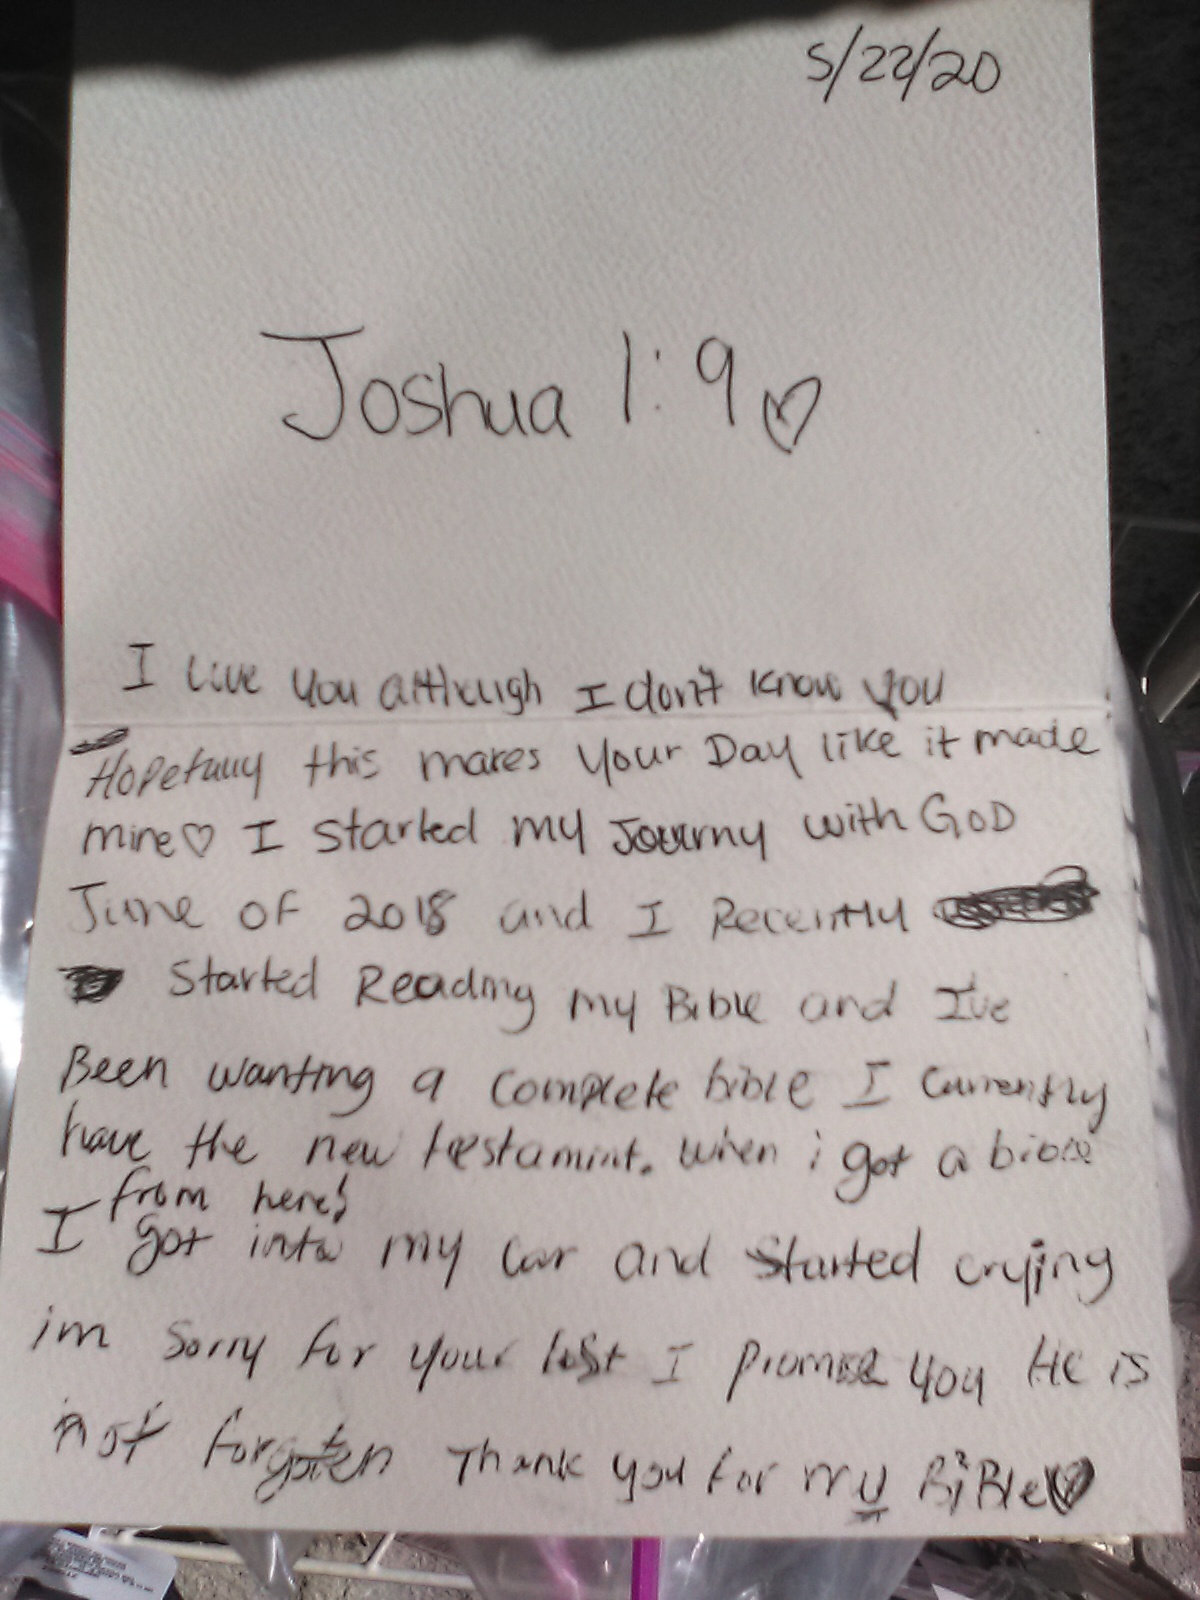 5/22/20
Joshua 1:9♡
I live you although I don't know you
Hopefully this makes your Day like it made
mine♡ I started my Journy with GOD
June of 2018 and I Recently
Started Reading my Bible and I've
Been wanting a complete bible I currently
have the new testamint. when i got a bible
from here!
I got into my car and started crying
im sorry for your lost I promise you He is
not forgoten Thank you for my BiBle♡